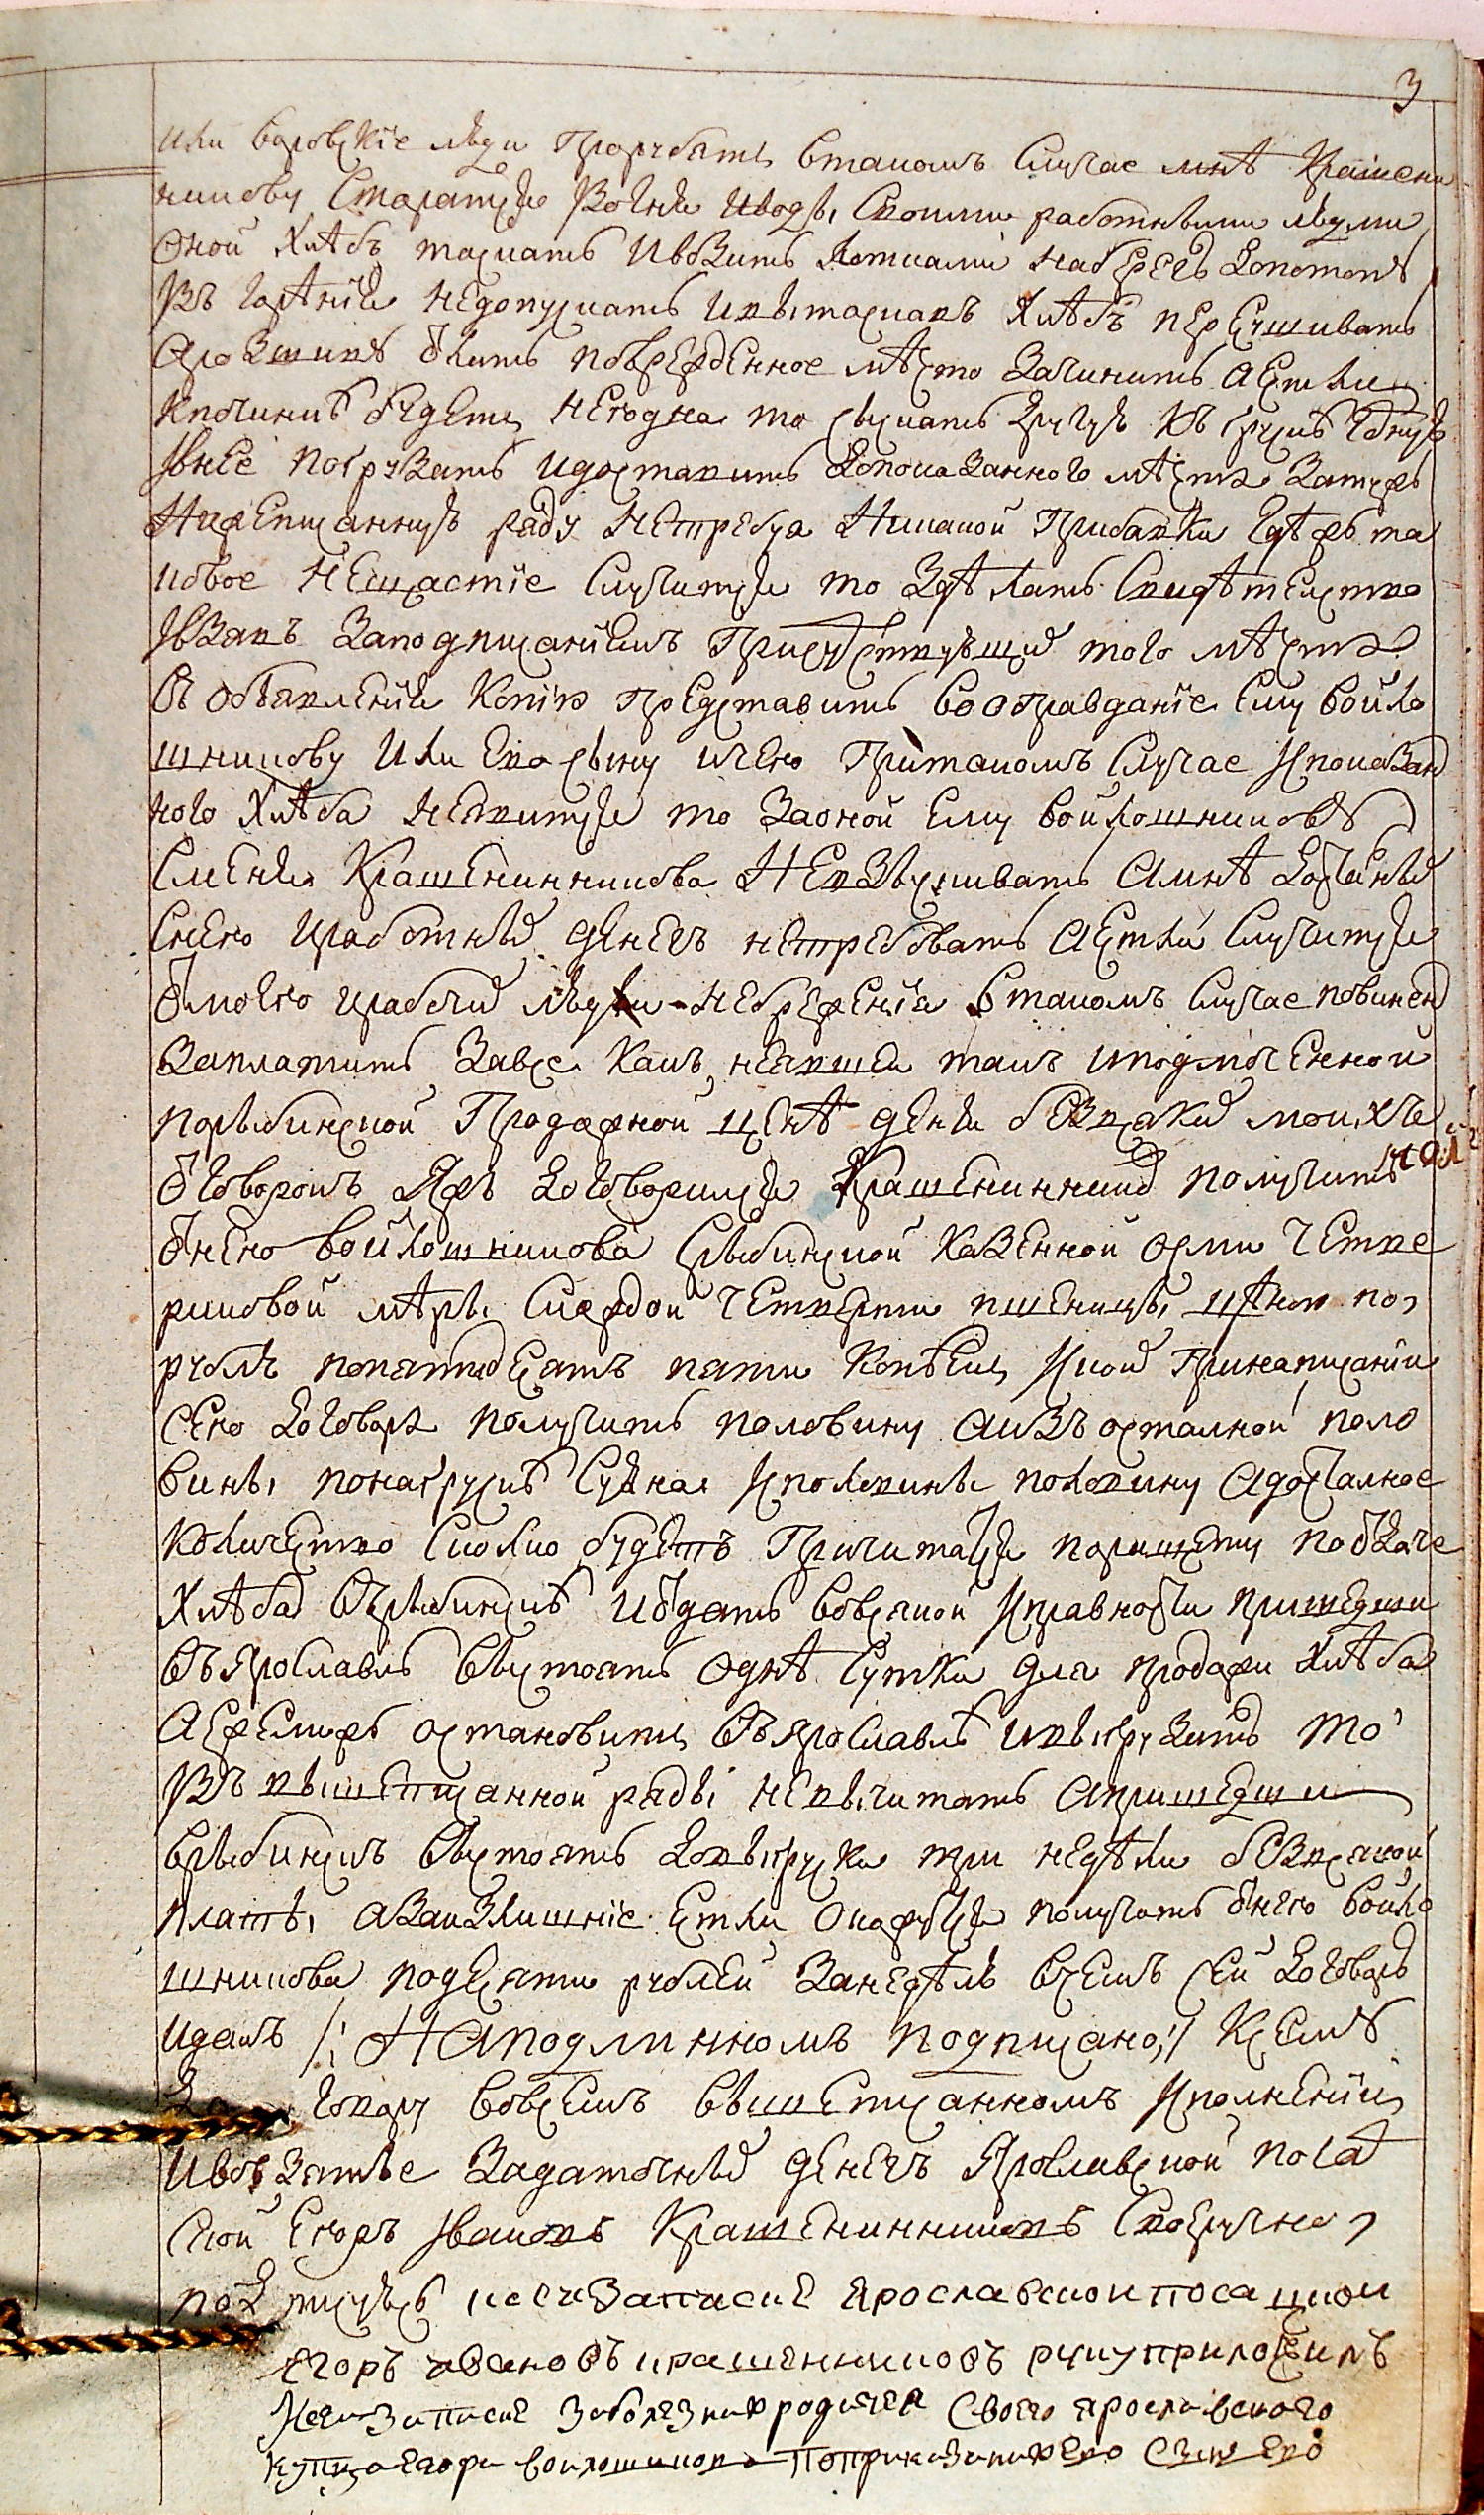 3
или воровские люди прорубятъ втакомъ случае мнѣ Крашени
ниникову старатца вогня иводы своими работными людми
оной хлѣбъ таскать ивозить лотками наберегъ допотопу
въ горѣнии недопускать ивытаскавъ хлѣбъ пересушивать
повреждѣнное мѣсто зачинить аетли
кпочинкѣ будетъ негодна то сыскать другую къ грускѣ
внее погрузить идоставить допоказанного мѣста затужъ
нижеписанную ряду нетребуя никакой прибавки гдѣжъ та
ковое нещастие случитца то здѣлать свидѣтелство
взявъ заподписаниемъ присутствующих того мѣста
объявлении копию представить вооправдание ему войло
шникову или ево сыну ичего притакомъ случае ис показан
ного хлѣба неявитца то заоной ему войлошникову
сменя Крашенинникова невзыскивать амнѣ
снего иработных денегъ нетребовать аетли случитца
отмоего ирабочих людей небрежения втакомъ случае повинен
заплатить завсе какъ неявшей такъ иподмоченной
порыбинской продажной ценѣ денги безвсяких моихъ
отговоровъ яжъ договорился Крашенинников получить
отнего войлошникова срыбинской казенной орли четве
риковой мѣры скаждой четверти пшеницы цѣною по
рублю попятидесятъ пяти копѣекъ искои принаписании
сего договора получить половину аизъ осталной поло
вины понагрускѣ судна исполовины половину адосталное
количество сколко будетъ причитатца поращету поотдаче
хлѣба върыбинскѣ иотдать вовсякой исправности пришедши
въярославль выстоять однѣ сутки для продажи хлѣба
аежели жъ остановитъ въярославлѣ ивыгрузить то
въ вышеписанной ряды невычитать апришедши
врыбинскъ выстоять довыгруски три недѣли безвсякой
платы азаизлишние етли окажутца получать отнего войло
шникова подесяти рублей занедѣлю всемъ сей договоръ
идалъ /: Наподлинномъ подписано :/ Ксему
договору вовсемъ вышеписанномъ исполнении
ивовзятье задаточных денегъ Ярославской поса
ской Егоръ Ивановъ Крашенинниковъ своеручно
подписуюсь ксеи записке ярославскои посацкои
егоръ ивановъ крашенинниковъ руку приложилъ
ксеи записке заболезнию родителя своего ярославского
купца егора воилошникова поприказанию ево сынъ ево